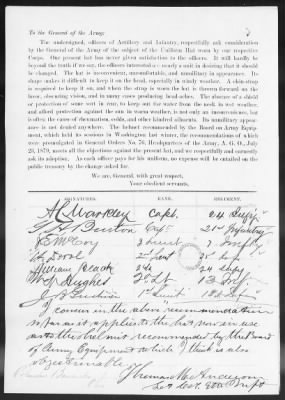 To the General of the Army:
The undersigned, officers of Artillery and Infantry, respectfully ask consideration
by the General of the Army of the subject of the Uniform Hat worn by our respective
Corps. Our present hat has never given satisfaction to the officers. It will hardly be
beyond the truth if we say, the officers interested are nearly a unit in desiring that it should
be changed. The hat is inconvenient, uncomfortable, and unmilitary in appearance. Its
shape makes it difficult to keep it on the head, especially in windy weather. A chin-strap
is required to keep it on, and when the strap is worn the hat is thrown forward on the
brow, obscuring vision, and in many cases producing head-aches. The absence of a shield
or protection of some sort in rear, to keep out the water from the neck in wet weather,
and afford protection against the sun in warm weather, is not only an inconvenience, but
is often the cause of rheumatism, colds, and other kindred ailments. Its unmilitary appear-
ance is not denied anywhere. The helmet recommended by the Board on Army Equip-
ment, which held its sessions in Washington last winter, the recommendations of which
were promulgated in General Orders No. 76, Headquarters of the Army, A. G. O., July
23, 1879, meets all the objections against the present hat, and we respectfully and earnestly
ask its adoption. As each officer pays for his uniform, no expense will be entailed on the
public treasury by the change asked for.
We are, General, with great respect,
Your obedient servants,
SIGNATURES. RANK. REGIMENT.
A C Markley Capt. 24 Infty
Capt 21st Infantry
McCoy
2d Lieut
William Black 24
Hughes 2d Lt
1st Lieut
I concur in the above recommendation
so far as it applies to the hat now in use
as to the helmet recommended by the board
of Army Equipment which I think is also
objectionable.
Anderson
Lt Col. Inft